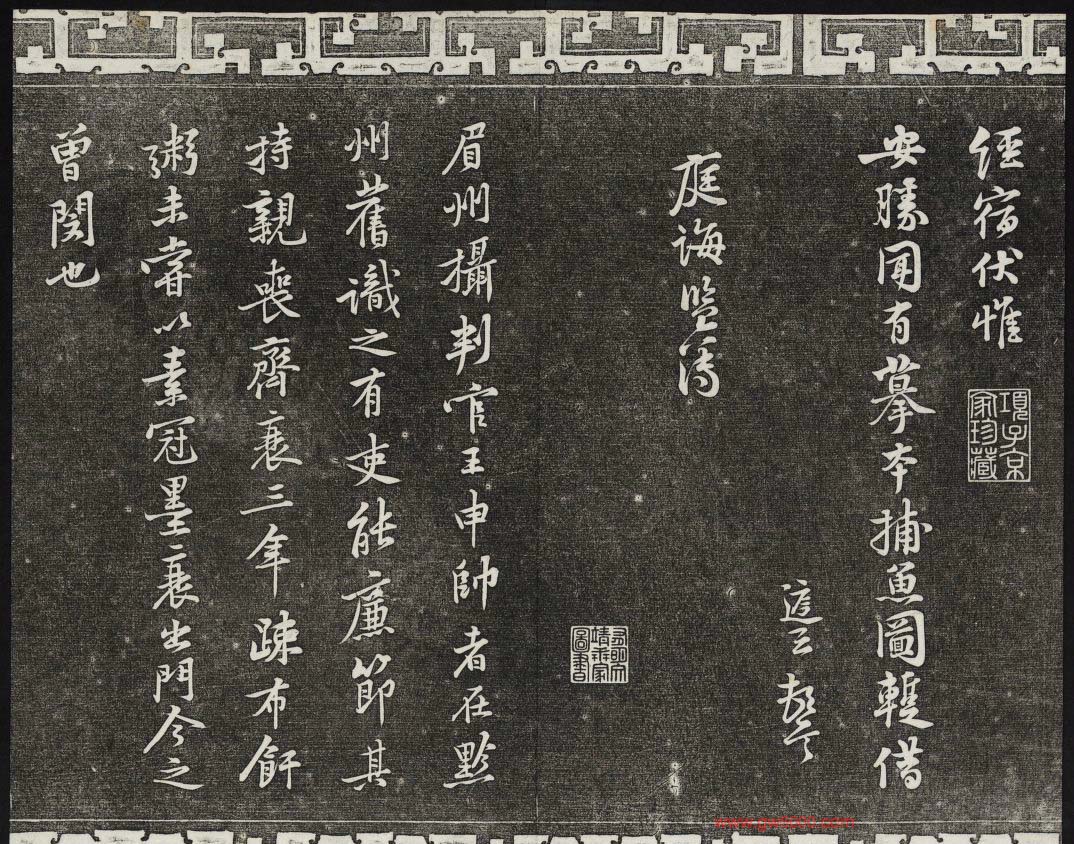 經宿伏惟
項子京家珍藏
安勝聞有摹本捕魚圖輙借
庭誨監簿
眉州攝判官王申帥者在黔
州舊識之有吏能廉節其
持親喪齊衰三年疎布飦
粥未甞以素冠墨衰出門今之
曾閔也